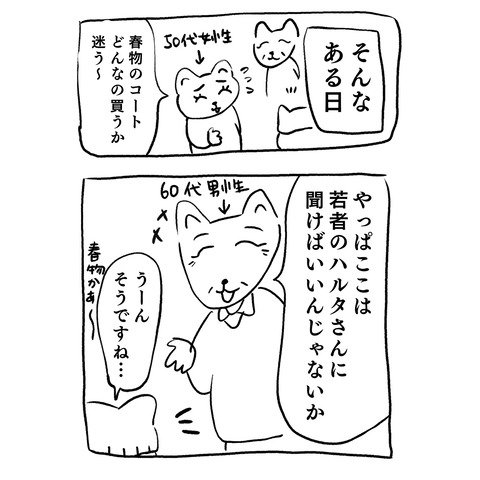 そんな
ある日
50代女性
春物のコート
どんなの買うか
迷う〜
やっぱここは
若者のハルタさんに
聞けばいいんじゃないか
60代男性
うーん
そうですね…
春物かあ〜